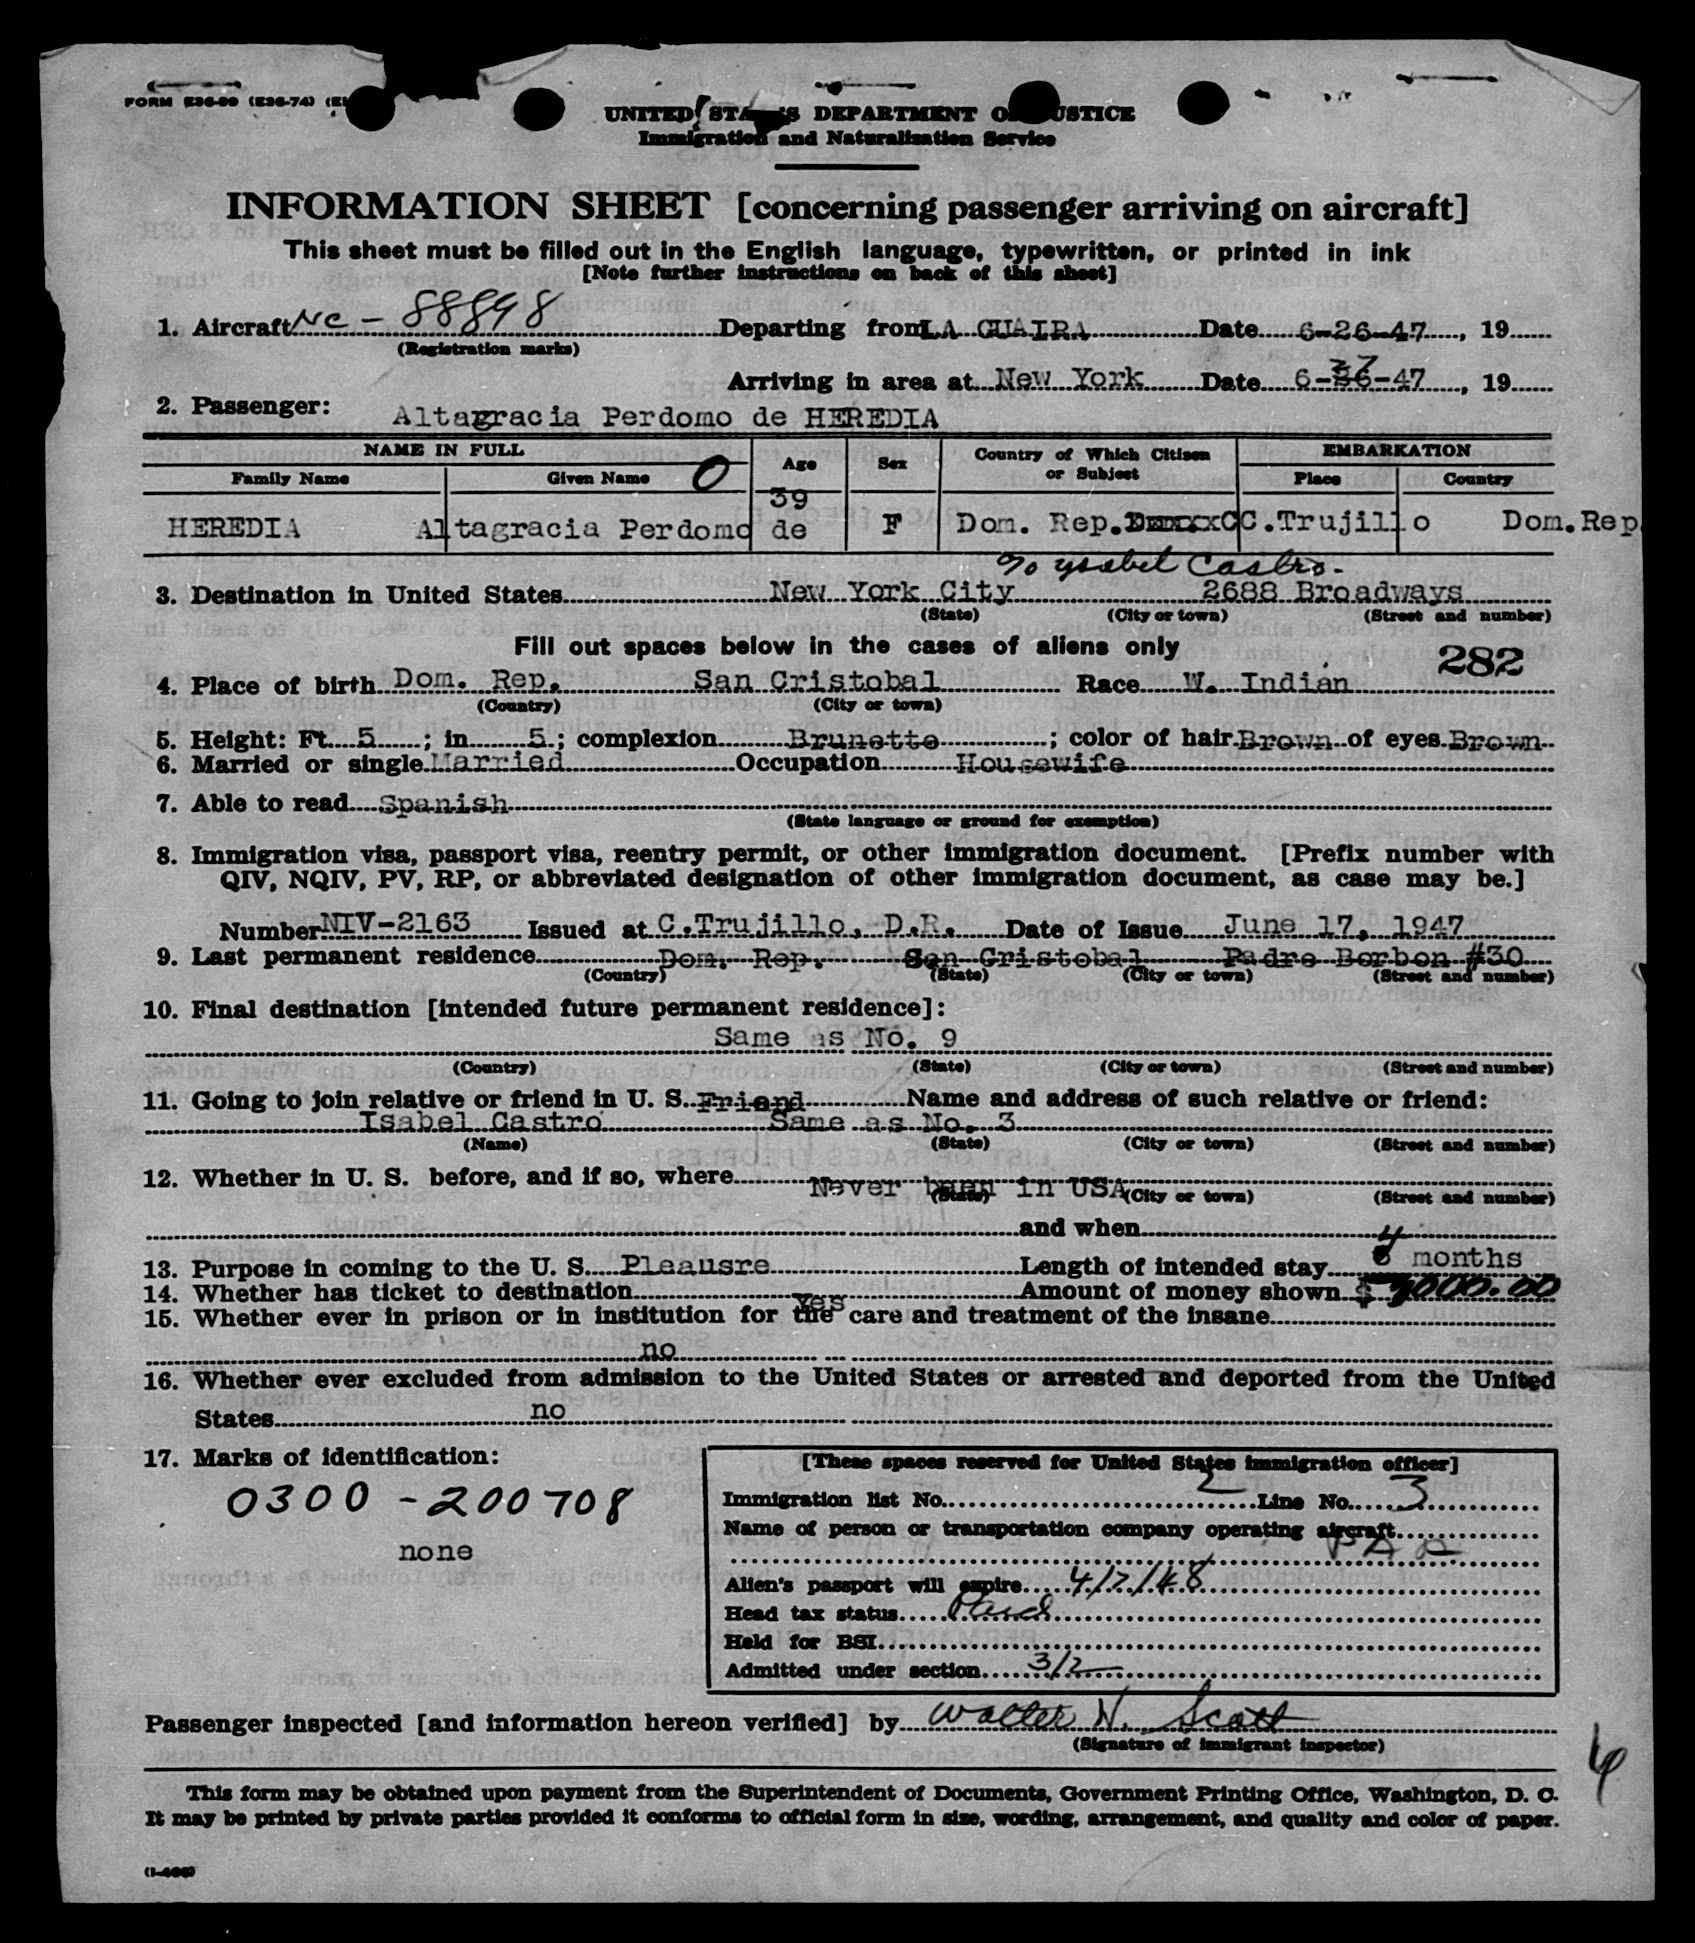 FORM E36-99 (E36-74)
UNITED STATES DEPARTMENT OF JUSTICE
Immigration and Naturalization Service
INFORMATION SHEET [concerning passenger arriving on aircraft]
This sheet must be filled out in the English language, typewritten, or printed in ink
[Note further instructions on back of this sheet]
1. Aircraft NC - 88898 Departing from LA GUAIRA Date 6-26-47, 19
(Registration marks)
Arriving in area at New York Date 6-27-47, 19
2. Passenger: Altagracia Perdomo de HEREDIA
NAME IN FULL Age Sex Country of Which Citizen or Subject EMBARKATION
Family Name Given Name O Place Country
39
HEREDIA Altagracia Perdomo de F Dom. Rep. C.Trujillo Dom.Rep
c/o Ysabel Castro-
3. Destination in United States New York City 2688 Broadways
(State) (City or town) (Street and number)
Fill out spaces below in the cases of aliens only
282
4. Place of birth Dom. Rep. San Cristobal Race W. Indian
(Country) (City or town)
5. Height: Ft. 5; in. 5; complexion Brunette; color of hair Brown of eyes Brown
6. Married or single Married Occupation Housewife
7. Able to read Spanish
(State language or ground for exemption)
8. Immigration visa, passport visa, reentry permit, or other immigration document. [Prefix number with
QIV, NQIV, PV, RP, or abbreviated designation of other immigration document, as case may be.]
Number NIV-2163 Issued at C.Trujillo, D.R. Date of Issue June 17, 1947
9. Last permanent residence Dom. Rep. San Cristobal Padre Borbon #30
(Country) (State) (City or town) (Street and number)
10. Final destination [intended future permanent residence]:
Same as No. 9
(Country) (State) (City or town) (Street and number)
11. Going to join relative or friend in U. S. Friend Name and address of such relative or friend:
Isabel Castro Same as No. 3
(Name) (State) (City or town) (Street and number)
12. Whether in U. S. before, and if so, where Never been in USA
(State) (City or town) (Street and number)
and when
13. Purpose in coming to the U. S. Pleausre Length of intended stay 4 months
14. Whether has ticket to destination Yes Amount of money shown $ 000.00
15. Whether ever in prison or in institution for the care and treatment of the insane
no
16. Whether ever excluded from admission to the United States or arrested and deported from the United
States no
17. Marks of identification:
0300 - 200708
none
[These spaces reserved for United States immigration officer]
Immigration list No. 2 Line No. 3
Name of person or transportation company operating aircraft
PAA
Alien's passport will expire 4/17/48
Head tax status Paid
Held for BSI
Admitted under section 3/2
Passenger inspected [and information hereon verified] by Walter N. Scott
(Signature of immigrant inspector)
This form may be obtained upon payment from the Superintendent of Documents, Government Printing Office, Washington, D. C.
It may be printed by private parties provided it conforms to official form in size, wording, arrangement, and quality and color of paper.